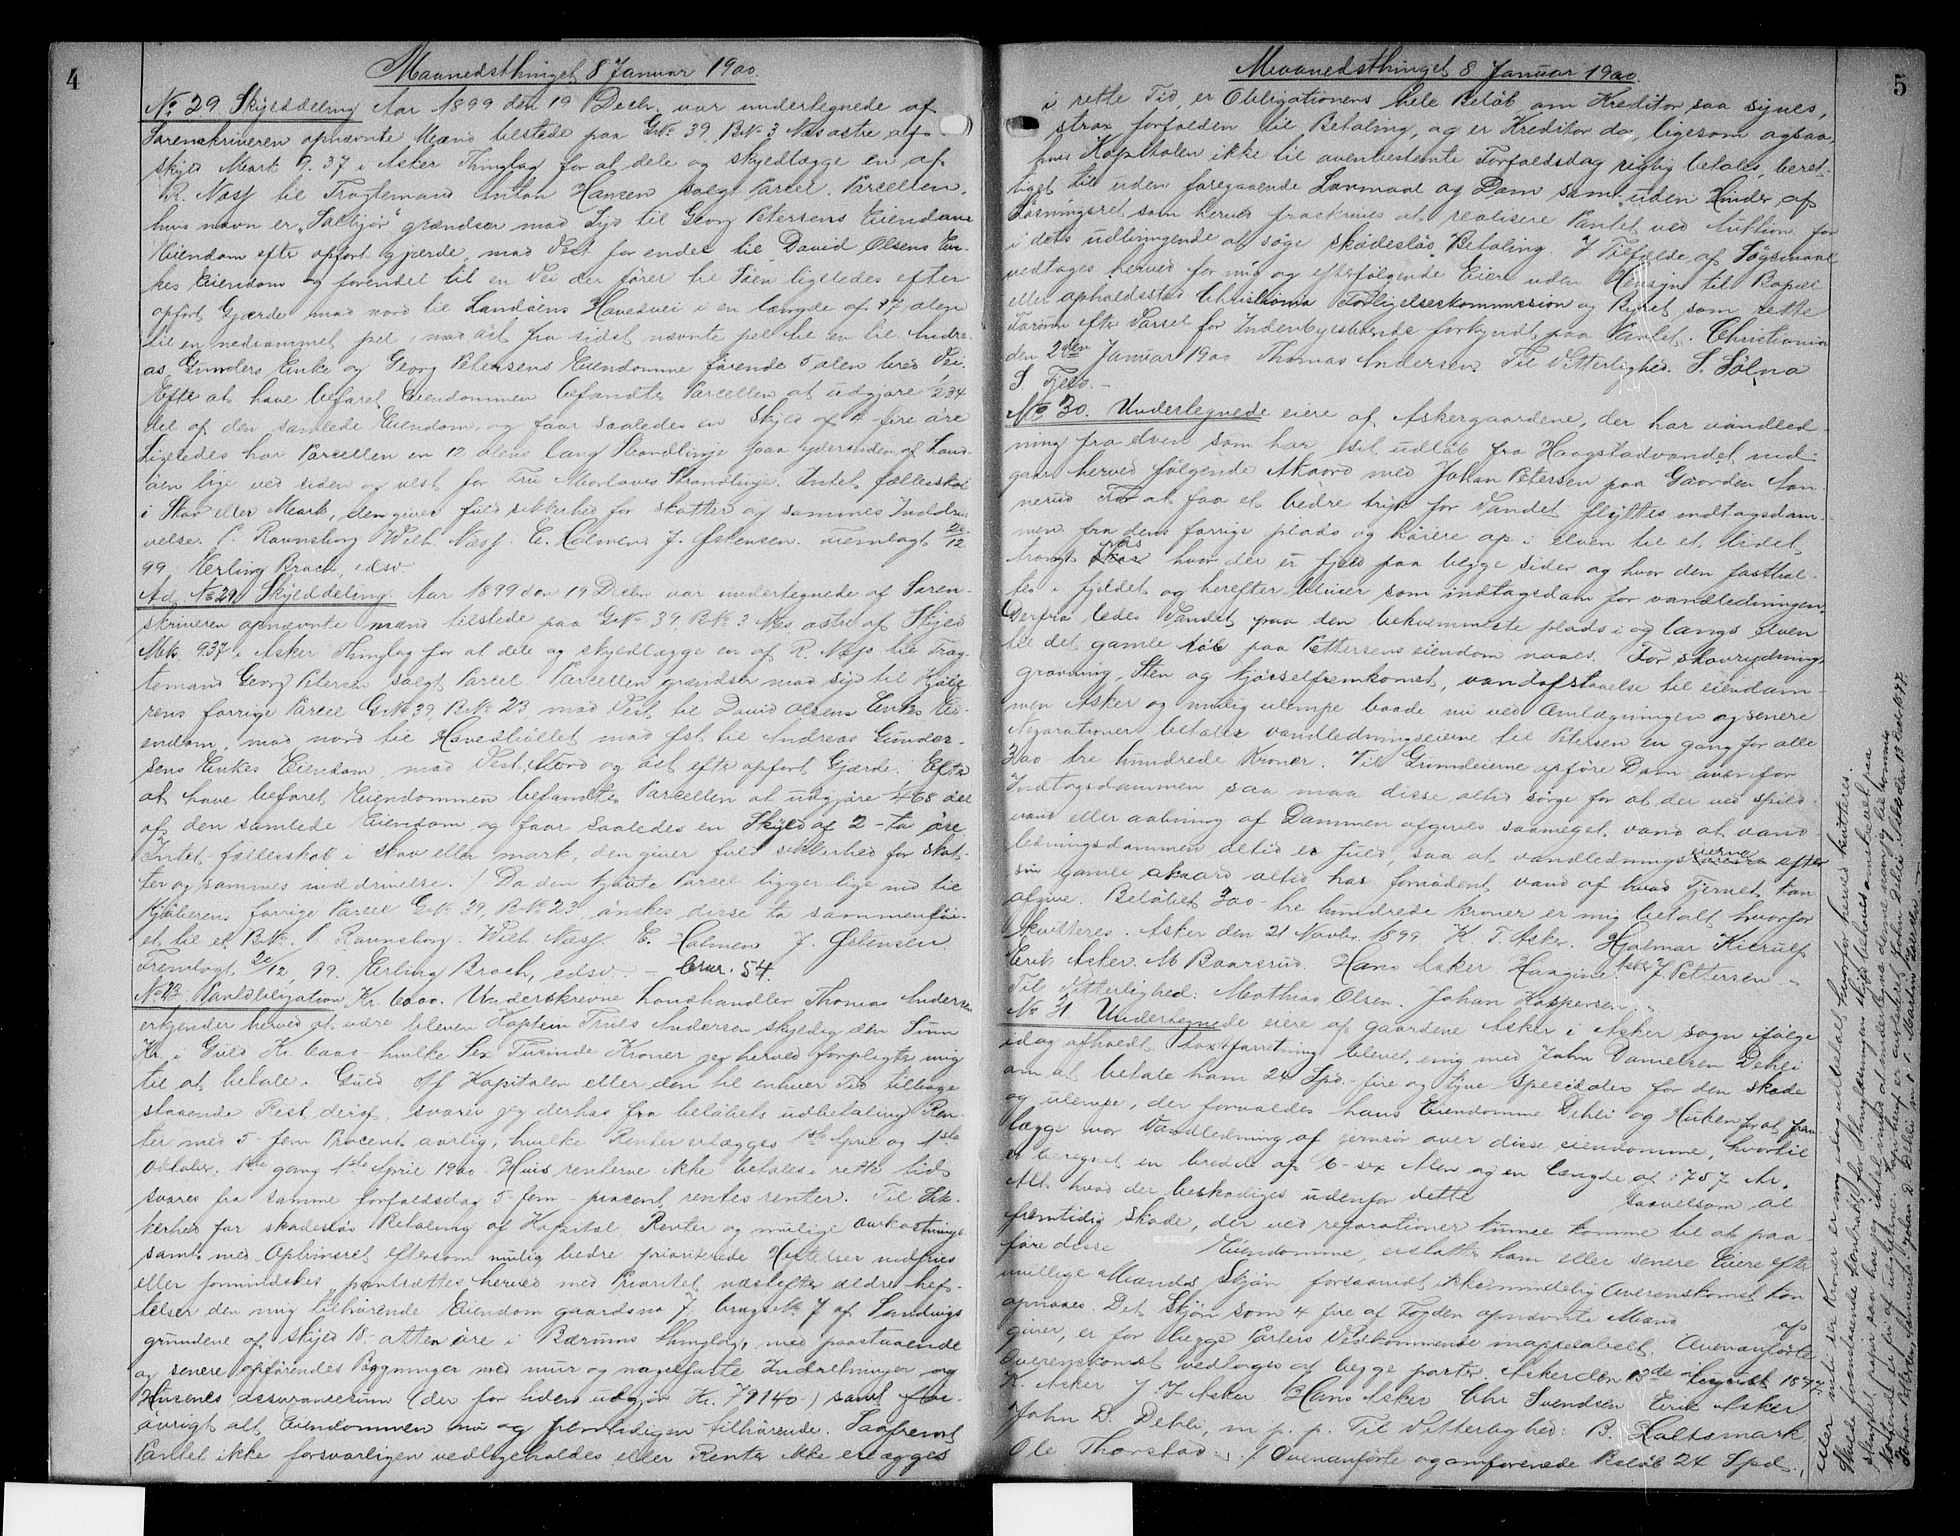 4
Maanedsthinget 8 Januar 1900.
No 29 Skylddeling Aar 1899 den 19 Decbr. var undertegnede af
Sorenskriveren opnævnte Mænd tilstede paa G.No. 39, B.No. 3 Næs østre af
skyld Mark 9.37 i Asker Thinglag for at dele og skyldlægge en af
R. Næss til Fragtemand Anton Hansen solgt Parcel. Parcellen,
hvis navn er "Solbjør" grændser mod Syd til Georg Petersens Eiendom
Eiendom efter opført gjærde, mod Vest for endel til David Olsens En-
kes Eiendom og forendel til en Vei der fører til Søen ligeledes efter
opført Gjærde mod nord til Landøens Hovedvei i en længde af 17 alen
til en nedrammet pel, mod øst fra sidst nævnte pel til en til Andre-
as Gunders Enke og Georg Petersens Eiendomme førende 5 alen bred Vei.
Efter at have befaret Eiendommen befandtes Parcellen at udgjøre 1/234
del af den samlede Eiendom, og faar saaledes en Skyld af 4 - fire øre
Ligeledes har Parcellen en 12 alens lang Strandlinje paa ydersiden af Land-
øen lige ved siden og vest for Fru Morlaws Strandlinje. Intet fællesskab
i Skov eller Mark, den giver fuld sikkerhed for skatter og sammes Inddri-
velse. P. Ravnsborg Wilh. Næss. E. Holmen J. Østensen. Fremlagt 20/12
99. Herling Broch, edsv.
Ad. No 29. Skylddeling. Aar 1899 den 19 Decbr. var undertegnede af Soren-
skriveren opnævnte mænd tilstede paa G.No. 39 B.No. 3 Næs østre af Skyld
Mk. 9.37 i Asker Thinglag for at dele og skyldlægge en af R. Næss til Frag-
temand Georg Petersen solgt Parcel. Parcellen grændser mod syd til Kjøbe-
rens forrige Parcel G.No. 39, B.No. 23 mod Vest til David Olsens Enkes Ei-
endom, mod nord til Hovedbøllet mod Øst til Andreas Gunder-
sens Enkes Eiendom, mod Vest, Nord og øst efter opført Gjærde. Efter
at have befaret Eiendommen befandtes Parcellen at udgjøre 1/468 del
af den samlede Eiendom og faar saaledes en Skyld af 2 - to øre
Intet fællesskab i skov eller mark, den giver fuld sikkerhed for skat-
ter og sammes inddrivelse. / Da den kjøbte Parcel ligger lige ned til
Kjøberens forrige Parcel G.No. 39, B.No. 23, ønskes disse to sammenføi-
et til et B.No. P. Ravnsborg. Wilh. Næss. E. Holmen J. Østensen
Fremlagt 20/12. 99. Herling Broch, edsv. - 54.
Pantobligation Kr. 6000. Underskrevne Landhandler Thomas Andersen
erkjender herved at være bleven Kaptein Truls Andersen skyldig den Sum
Kr. i Guld Kr. 6000 - hvilke Sex Tusinde Kroner jeg herved forpligter mig
til at betale i Guld. Af Kapitalen eller den til enhver Tid tilbage
staaende Rest deraf, svarer jeg derhos fra beløbets udbetaling Ren-
ter med 5 - fem Procent aarlig, hvilke Renter erlægges 1ste April og 1ste
Oktober, 1ste gang 1ste April 1900. Hvis renterne ikke betales i rette tid
svares fra samme forfaldsdag 5 - fem - procent rentes renter. Til Sik-
kerhed for skadesløs Betaling af Kapital Renter og mulige omkostninger
samt med Optrinsret eftersom mulig bedre prioriterede Heftelser indfries
eller formindskes pantsættes herved med Prioritet næstefter ældre hef-
telser den mig tilhørende Eiendom gaardsno 7, brugsNo. 7 af Sandvigs
grundene af skyld 18 - atten øre i Bærums thinglag, med paastaaende
og senere opførendes Bygninger med mur og nagelfaste Indretninger og
Husenes Assurancesum (der for tiden udgjør Kr. 79140 -) samt for-
øvrigt alt, Eiendommen nu og fremtidigen tilhørende. Saafremt
Pantet ikke forsvarligen vedligeholdes eller Renter ikke erlægges
5
Maanedsthinget 8 Januar 1900.
i rette Tid, er Obligationens hele Beløb om Kreditor saa synes,
strax forfalden til Betaling, og er Kreditor da, ligesom ogsaa,
hvis Kapitalen ikke til ovenbestemte Forfaldsdag rigtig betales, beret-
tiget til uden foregaaende Lovmaal og Dom samt uden Hinder af
Løsningsret som herved fraskrives at realisere Pantet ved Auktion for
i dets udbringende at søge skadesløs Betaling. I Tilfælde af Søgsmaal
vedtages herved for mig og efterfølgende Eiere uden Hensyn til Bopæl
eller opholdssted Christiania Forligelseskommission og Byret som rette
Forum efter Varsel for Indenbysboende forkyndt paa Pantet. Christiania
den 2den Januar 1900 Thomas Andersen Til Vitterlighed. S. Sølna
S Fjeld. -
No 30. Undertegnede eiere af Askergaardene, der har vandled-
ning fra elven som har sit udløb fra Haagstadvandet ind-
gaar herved følgende Akkord med Johan Petersen paa Gaarden Aan-
nerud For at faa et bedre tryk for Vandet flyttes indtagsdam-
men fra dens forrige plads og høiere op i elven til et lidet
trangt hvor der er fjeld paa begge sider og hvor den fasthol-
tes i fjeldet og herefter bliver som indtagsdam for vandledningen.
Derfra ledes Vandet paa den bekvemmeste plads i og langs elven
til det gamle løb paa Pettersens eiendom naaes. For skovrydning,
gravning, Sten og kjørselfremkomst, vandafstaaelse til eiendom-
men Asker og mulig ulempe baade nu ved Omlægningen og senere
Reparationer betaler vandledningseierne til Petersen en gang for alle
300 tre hundrede Kroner. Til Grundeierne opføre Dam ovenfor
Indtagsdammen saa maa disse altid sørge for at der ved spild-
vand eller aabning af Dammen afgives saameget vand at vand-
ledningsdammen altid er fuld, saa at vandledningseierne efter
sin gamle akkord altid har fornødent vand af hvad Tjernet kan
afgive. Beløbet 300 - tre hundrede kroner er mig betalt hvorfor
kvitteres. Asker den 21 Novbr. 1899 K. T. Asker. Hjalmar Kierulf
Erik Asker. M Baarsrud. Hans Asker Haagine Asker J. Pettersen. -
Til Vitterlighed: Mathias Olsen. Johan Kaspersen
No 31. Undertegnede eiere af gaardene Asker i Asker sogn ifølge
idag afholdt taxtforretning blevet enig med John Danielsen Dehli
om at betale ham 24 Spd. - fire og tyve Speciedaler for den skade
og ulempe, der forvoldes hans Eiendomme Dehli og Hukenfor at frem-
lægge vor Vandledning af jernrør over disse eiendomme, hvortil
er beregnet en bredde af 6 - sex Alen og en længde af 757 Al.
Alt hvad der beskadiges udenfor dette saavelsom al
fremtidig skade, der ved reparationer kunne komme til at paa-
føre disse Eiendomme, erstattes ham eller senere Eiere efter
uvillige Mænds Skjøn forsaavidt ikkemindelig Overenskomst kan
opnaaes. Det Skjøn som 4 fire af Fogden opnævnte Mænd af
giver, er for begge Parters Vedkommende inappellabelt. Ovenanførte
Overenskomst vedtages af begge parter. Asker den 13de August 1877
K. Asker J. J. Asker Hans Asker Chr Svendsen Erik Asker
John D. Dehli, m. p. p. Til Vitterlighed: B. Holtsmark
Ole Thorstad. / Ovenanførte og omforenede Beløb 24 Spd.,